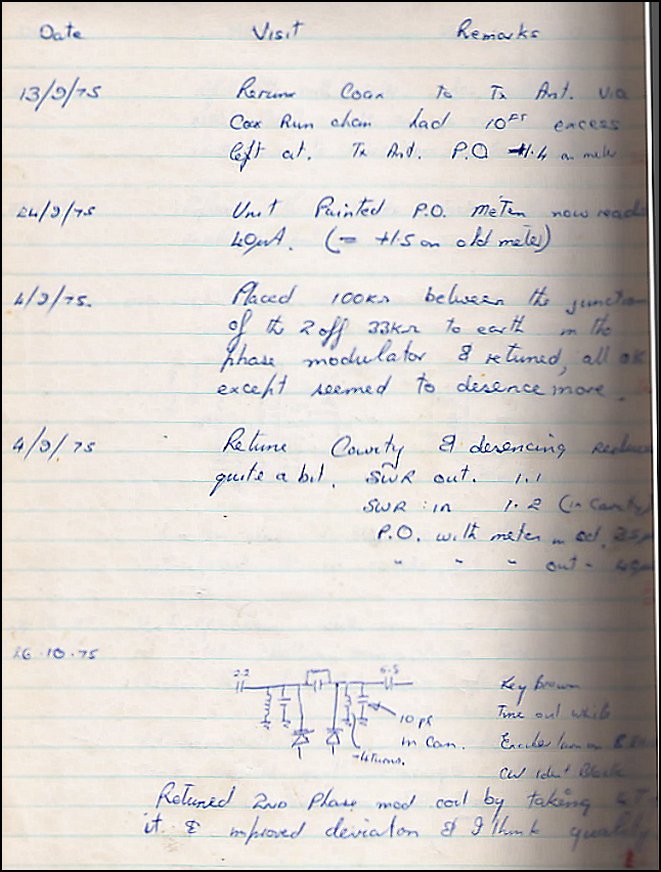 Date Visit Remarks
13/9/75 Rerun Coax to Tx Ant. via
Coax Run chain had 10FT excess
left at. Tx Ant. P.O +1.4 on meter
24/9/75 Unit Painted P.O. Meter now reads
40µA. (= +1.5 on old meter)
4/9/75. Placed 100KΩ between the junction
of the 2 off 33KΩ to earth in the
phase modulator & retuned, all ok
except seemed to desence more.
4/9/75 Retune Cavity & desencing
quite a bit. SWR out. 1.1
SWR in 1.2 (in Cavity)
P.O. with meter in
" " " out - 
26.10.75
2.2
10 pf
in Can.
4 turns.
Key brown
Time out white
Exciter turn on
CW ident Black
Retuned 2ND Phase mod coil by taking
it. & improved deviation & I think quality